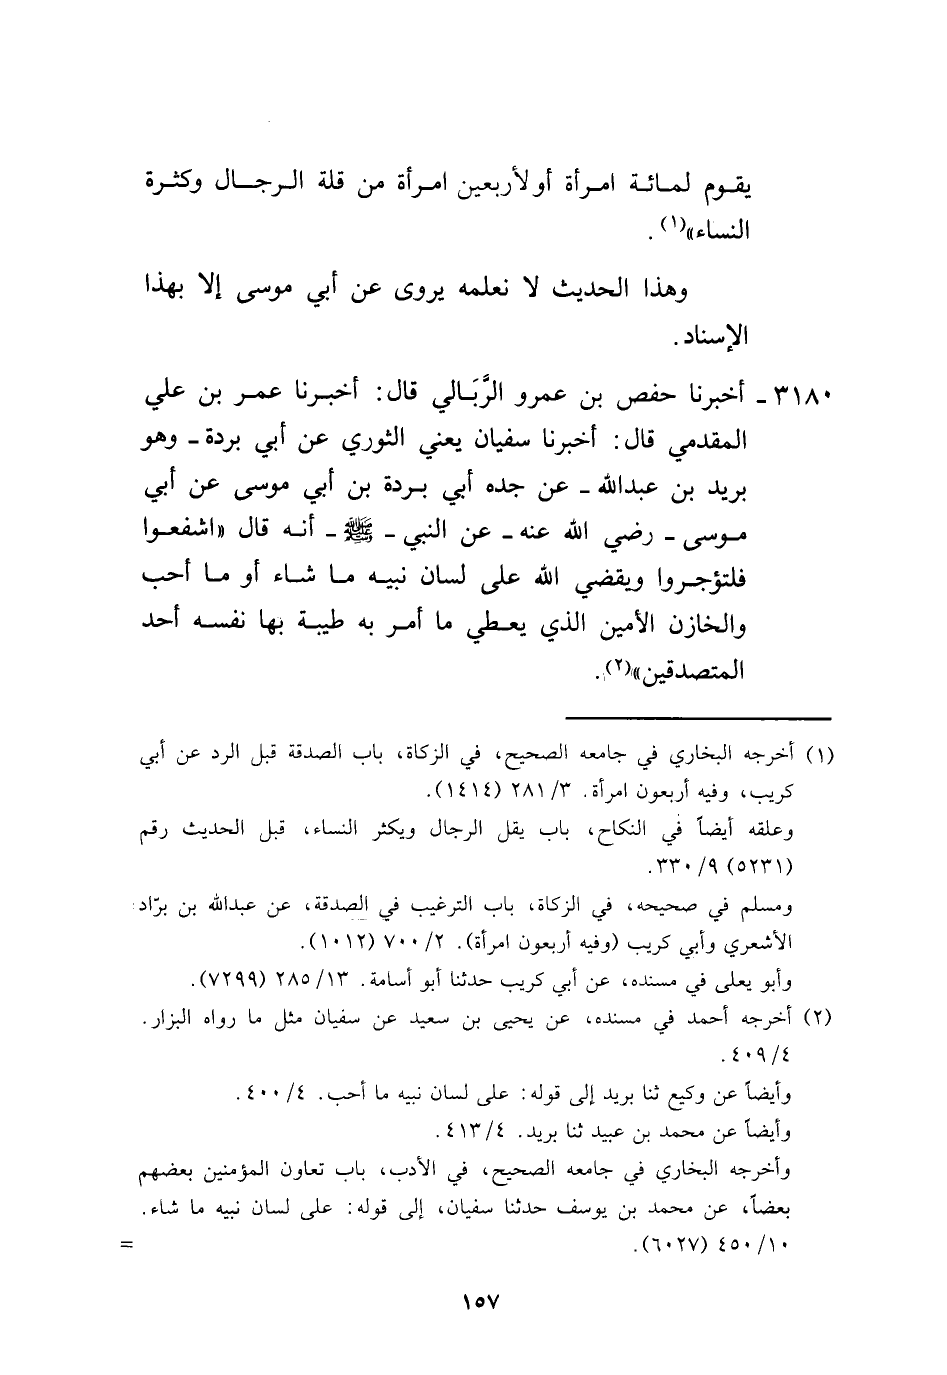 يقوم لمائة امرأة أولأربعين امرأة من قلة الرجال وكثرة
النساء»(١).
وهذا الحديث لا نعلمه يروى عن أبي موسى إلا بهذا
الإسناد.
٣١٨٠ - أخبرنا حفص بن عمرو الرَّبَالي قال: أخبرنا عمر بن علي
المقدمي قال: أخبرنا سفيان يعني الثوري عن أبي بردة - وهو
بريد بن عبدالله - عن جده أبي بردة بن أبي موسى عن أبي
موسى - رضي الله عنه - عن النبي - ﷺ - أنه قال «اشفعوا
فلتؤجروا ويقضي الله على لسان نبيه ما شاء أو ما أحب
والخازن الأمين الذي يعطي ما أمر به طيبة بها نفسه أحد
المتصدقين»(٢).
(١) أخرجه البخاري في جامعه الصحيح، في الزكاة، باب الصدقة قبل الرد عن أبي
كريب، وفيه أربعون امرأة. ٣/ ٢٨١ (١٤١٤).
وعلقه أيضاً في النكاح، باب يقل الرجال ويكثر النساء، قبل الحديث رقم
(٥٢٣١) ٩/ ٣٣٠.
ومسلم في صحيحه، في الزكاة، باب الترغيب في الصدقة، عن عبدالله بن برّاد
الأشعري وأبي كريب (وفيه أربعون امرأة). ٢/ ٧٠٠ (١٠١٢).
وأبو يعلى في مسنده، عن أبي كريب حدثنا أبو أسامة. ١٣/ ٢٨٥ (٧٢٩٩).
(٢) أخرجه أحمد في مسنده، عن يحيى بن سعيد عن سفيان مثل ما رواه البزار.
٤/ ٤٠٩.
وأيضاً عن وكيع ثنا بريد إلى قوله: على لسان نبيه ما أحب. ٤/ ٤٠٠.
وأيضاً عن محمد بن عبيد ثنا بريد. ٤/ ٤١٣.
وأخرجه البخاري في جامعه الصحيح، في الأدب، باب تعاون المؤمنين بعضهم
بعضاً، عن محمد بن يوسف حدثنا سفيان، إلى قوله: على لسان نبيه ما شاء.
١٠/ ٤٥٠ (٦٠٢٧). =
١٥٧